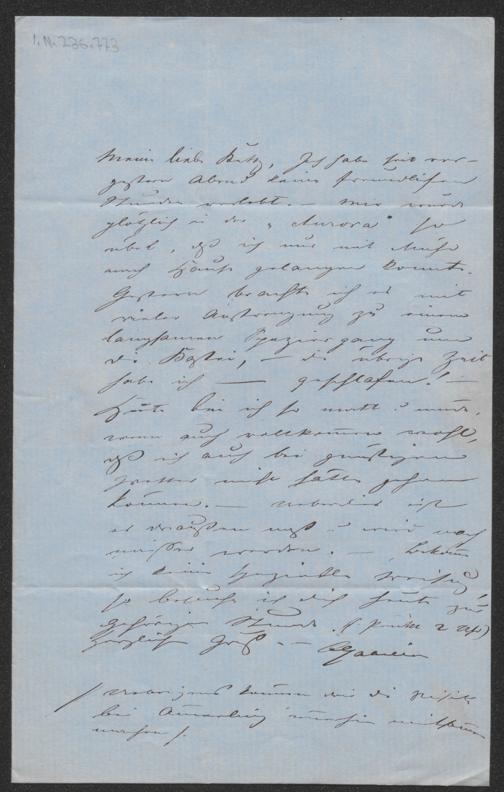 I. N. 236.773
Mein lieber Betty, Ich habe seit vor-
gestern Abend keine freundlichen
Stunden verlebt — Mir wurde
plötzlich in der "Aurora" so
übel, daß ich nur mit Mühe
nach Hause gelangen konnte.
Gestern brachte ich es mit
vieler Anstrengung zu einem
langsamen Spaziergang um
die Bastei, — die übrige Zeit
habe ich — geschlafen! —
Heute bin ich so matt u müde,
wenn auch vollkommen wohl,
daß ich auch bei günstigem
Wetter nicht hätte gehen
können. — Ueberdies ist
es draußen naß u wird noch
nasser werden. — Bekomme
ich keine
so besuche ich dich heute zur
gehörigen Stunde. (Punkt 2 Uhr)
Herzlich Gruß —
/ Uebrigens können wir die Visite
bei
machen /.